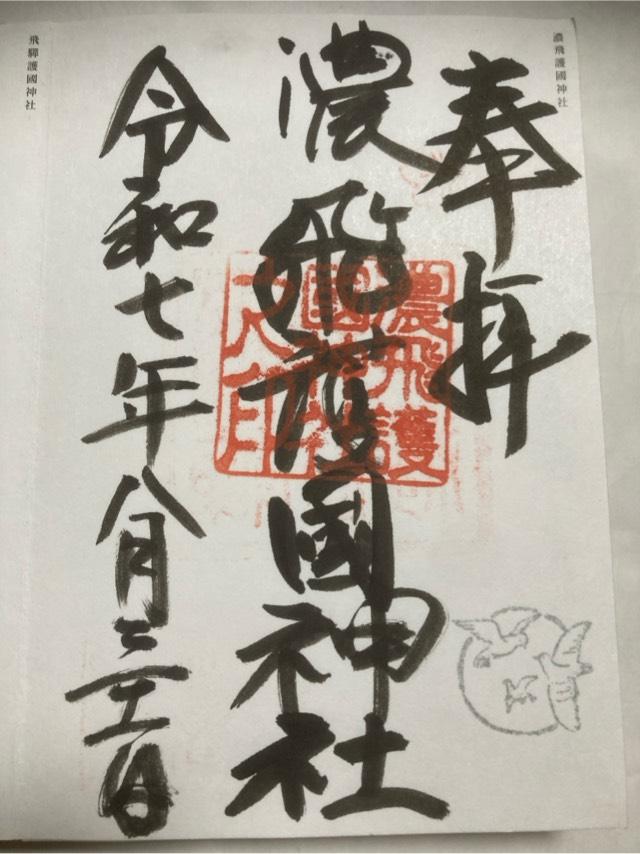 濃飛護國神社
奉拝
濃飛護國神社
濃飛護
國神社
之印
令和七年八月
日
飛驒護國神社